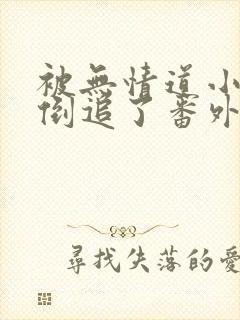 被無情道小
倒追了番外
尋找失落的愛